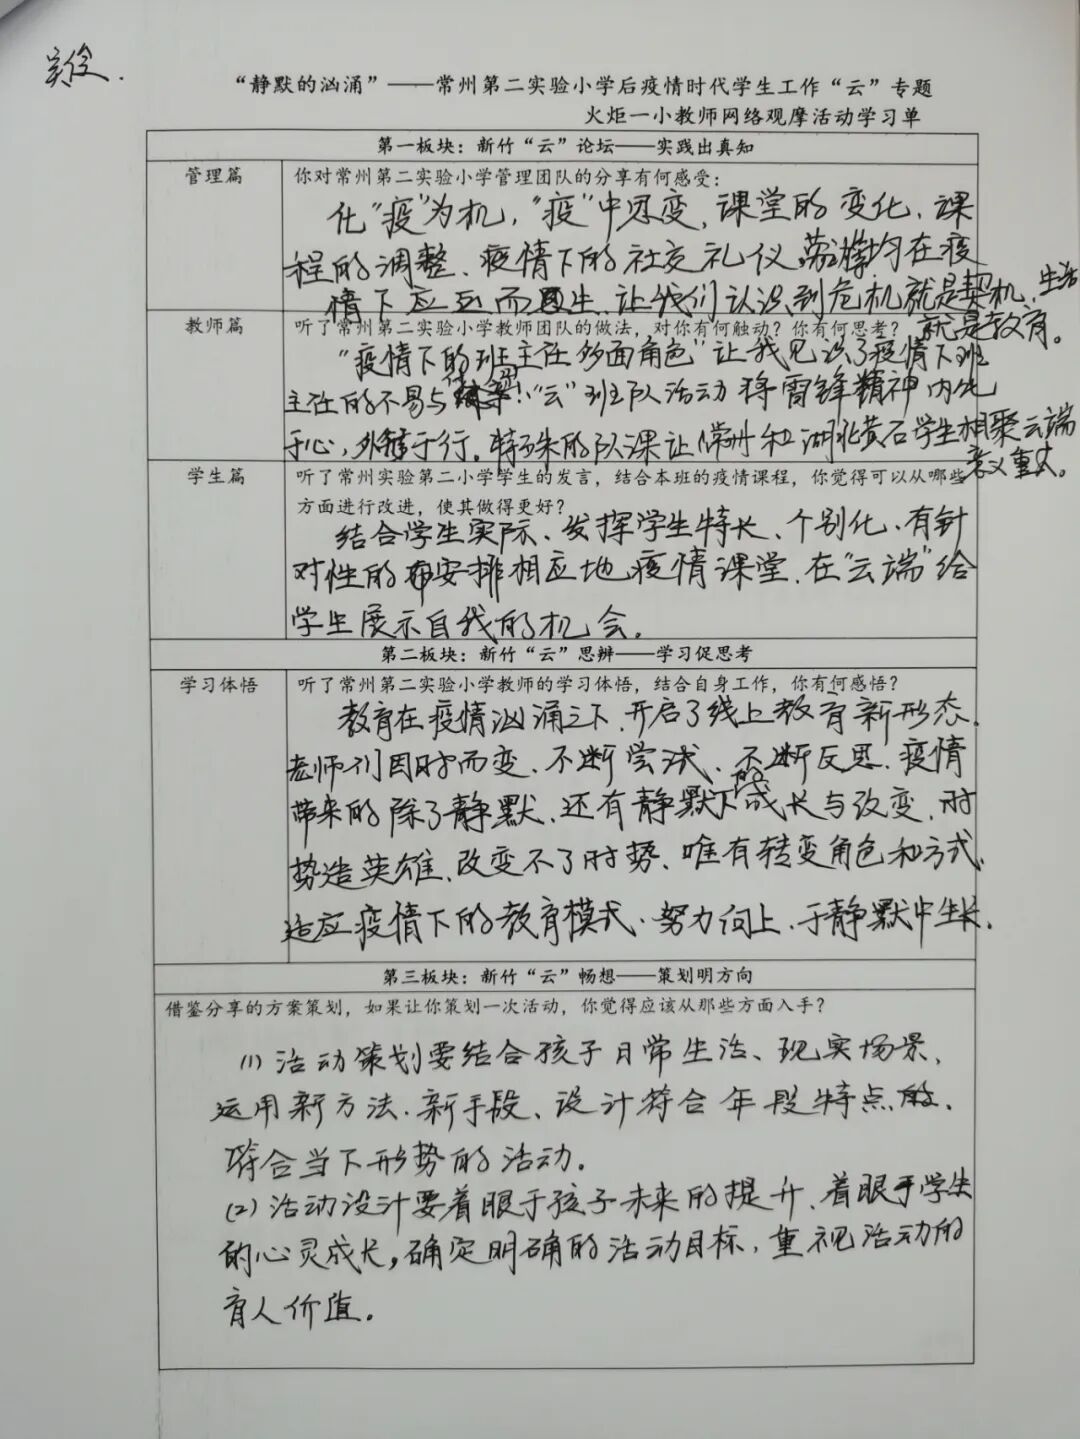 “静默的汹涌”——常州第二实验小学后疫情时代学生工作“云”专题
火炬一小教师网络观摩活动学习单
第一板块：新竹“云”论坛——实践出真知
管理篇
你对常州第二实验小学管理团队的分享有何感受：
化“疫”为机，“疫”中思变，课堂的变化、课
程的调整、疫情下的社交礼仪 均在疫
情下应运而生，让我们认识到危机就是契机，生活
就是教育。
教师篇
听了常州第二实验小学教师团队的做法，对你有何触动？你有何思考？
“疫情下的班主任多面角色”让我见识了疫情下班
主任的不易与 ！“云”班队活动将雷锋精神内化
于心，外 于行。特殊的队课让常州和湖北黄石学生相聚云端
意义重大。
学生篇
听了常州实验第二小学学生的发言，结合本班的疫情课程，你觉得可以从哪些
方面进行改进，使其做得更好？
结合学生实际、发挥学生特长、个别化、有针
对性的安排相应地疫情课堂，在“云端”给
学生展示自我的机会。
第二板块：新竹“云”思辨——学习促思考
学习体悟
听了常州第二实验小学教师的学习体悟，结合自身工作，你有何感悟？
教育在疫情汹涌之下，开启了线上教育新形态，
老师们因时而变、不断尝试、不断反思，疫情
带来的除了静默，还有静默下的成长与改变，时
势造英雄，改变不了时势，唯有转变角色和方式，
适应疫情下的教育模式，努力向上，于静默中生长。
第三板块：新竹“云”畅想——策划明方向
借鉴分享的方案策划，如果让你策划一次活动，你觉得应该从那些方面入手？
(1) 活动策划要结合孩子日常生活、现实场景，
运用新方法、新手段、设计符合年段特点的，
符合当下形势的活动。
(2) 活动设计要着眼于孩子未来的提升、着眼于学生
的心灵成长，确定明确的活动目标，重视活动的
育人价值。